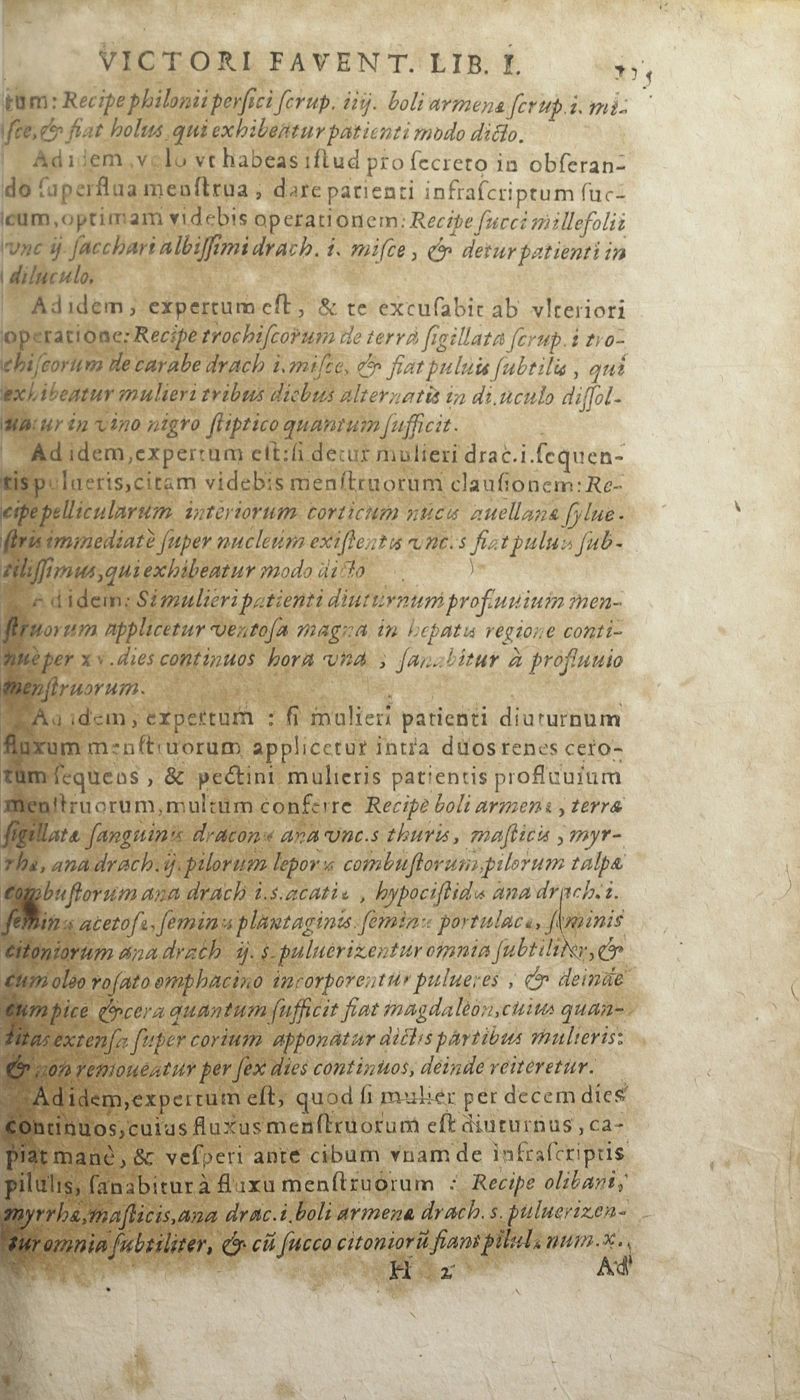 VICTORI FAVENT. LIB. I.
tum: Recipe philonii perfici ſcrup. iiij. boli armenæ ſcrup. i. mi-
ſce, & fiat bolus qui exhibeatur patienti modo dicto.
Ad idem volo vt habeas iſtud pro ſecreto in obſeran-
do ſuperflua menſtrua, dare patienti infraſcriptum ſuc-
cum, optimam videbis operationem: Recipe ſucci millefolii
vnc ij ſacchari albiſſimi drach. i. miſce, & detur patienti in
diluculo.
Ad idem, expertum eſt, & te excuſabit ab vlteriori
operatione: Recipe trochiſcorum de terra ſigillata ſcrup. i tro-
chiſcorum de carabe drach i. miſce, & fiat puluis ſubtilis, qui
exhibeatur mulieri tribus diebus alternatis in diluculo diſſol-
uatur in vino nigro ſtiptico quantum ſufficit.
Ad idem, expertum eſt: ſi detur mulieri drac. i. ſequen-
tis pulueris, citam videbis menſtruorum clauſionem: Re-
cipe pellicularum interiorum corticum nucis auellanæ ſylue-
ſtris immediatè ſuper nucleum exiſtentis vnc. s fiat puluis ſub-
tiliſſimus, qui exhibeatur modo dicto
Ad idem: Si mulieri patienti diuturnum profluuium men-
ſtruorum applicetur ventoſa magna in hepatis regione conti-
nuè per xv. dies continuos hora vna, ſanabitur à profluuio
menſtruorum.
Ad idem, expertum : ſi mulieri patienti diuturnum
fluxum menſtruorum applicetur intra duos renes cero-
tum ſequens, & pectini mulieris patientis profluuium
menſtruorum, multum conferre Recipe boli armenæ, terræ
ſigillatæ ſanguinis draconis ana vnc. s thuris, maſticis, myr-
rhæ, ana drach. ij. pilorum leporis combuſtorum, pilorum talpæ
combuſtorum ana drach i. s. acatiæ, hypociſtidis ana drach. i.
ſeminis acetoſæ, ſeminis plantaginis ſeminis portulacæ, ſeminis
citoniorum ana drach ij. s. puluerizentur omnia ſubtiliter, &
cum oleo roſato omphacino incorporentur pulueres, & deinde
cum pice & cera quantum ſufficit fiat magdaleon, cuius quan-
titas extenſa ſuper corium apponatur dictis partibus mulieris:
& non remoueatur per ſex dies continuos, deinde reiteretur.
Ad idem, expertum eſt, quod ſi mulier per decem dies
continuos, cuius fluxus menſtruorum eſt diuturnus, ca-
piat manè, & veſperi ante cibum vnam de infraſcriptis
pilulis, ſanabitur à fluxu menſtruorum : Recipe olibani,
myrrhæ, maſticis, ana drac. i. boli armenæ drach. s. puluerizen-
tur omnia ſubtiliter, & cū ſucco citoniorū fiant pilulæ num. x.
H 2 Ad